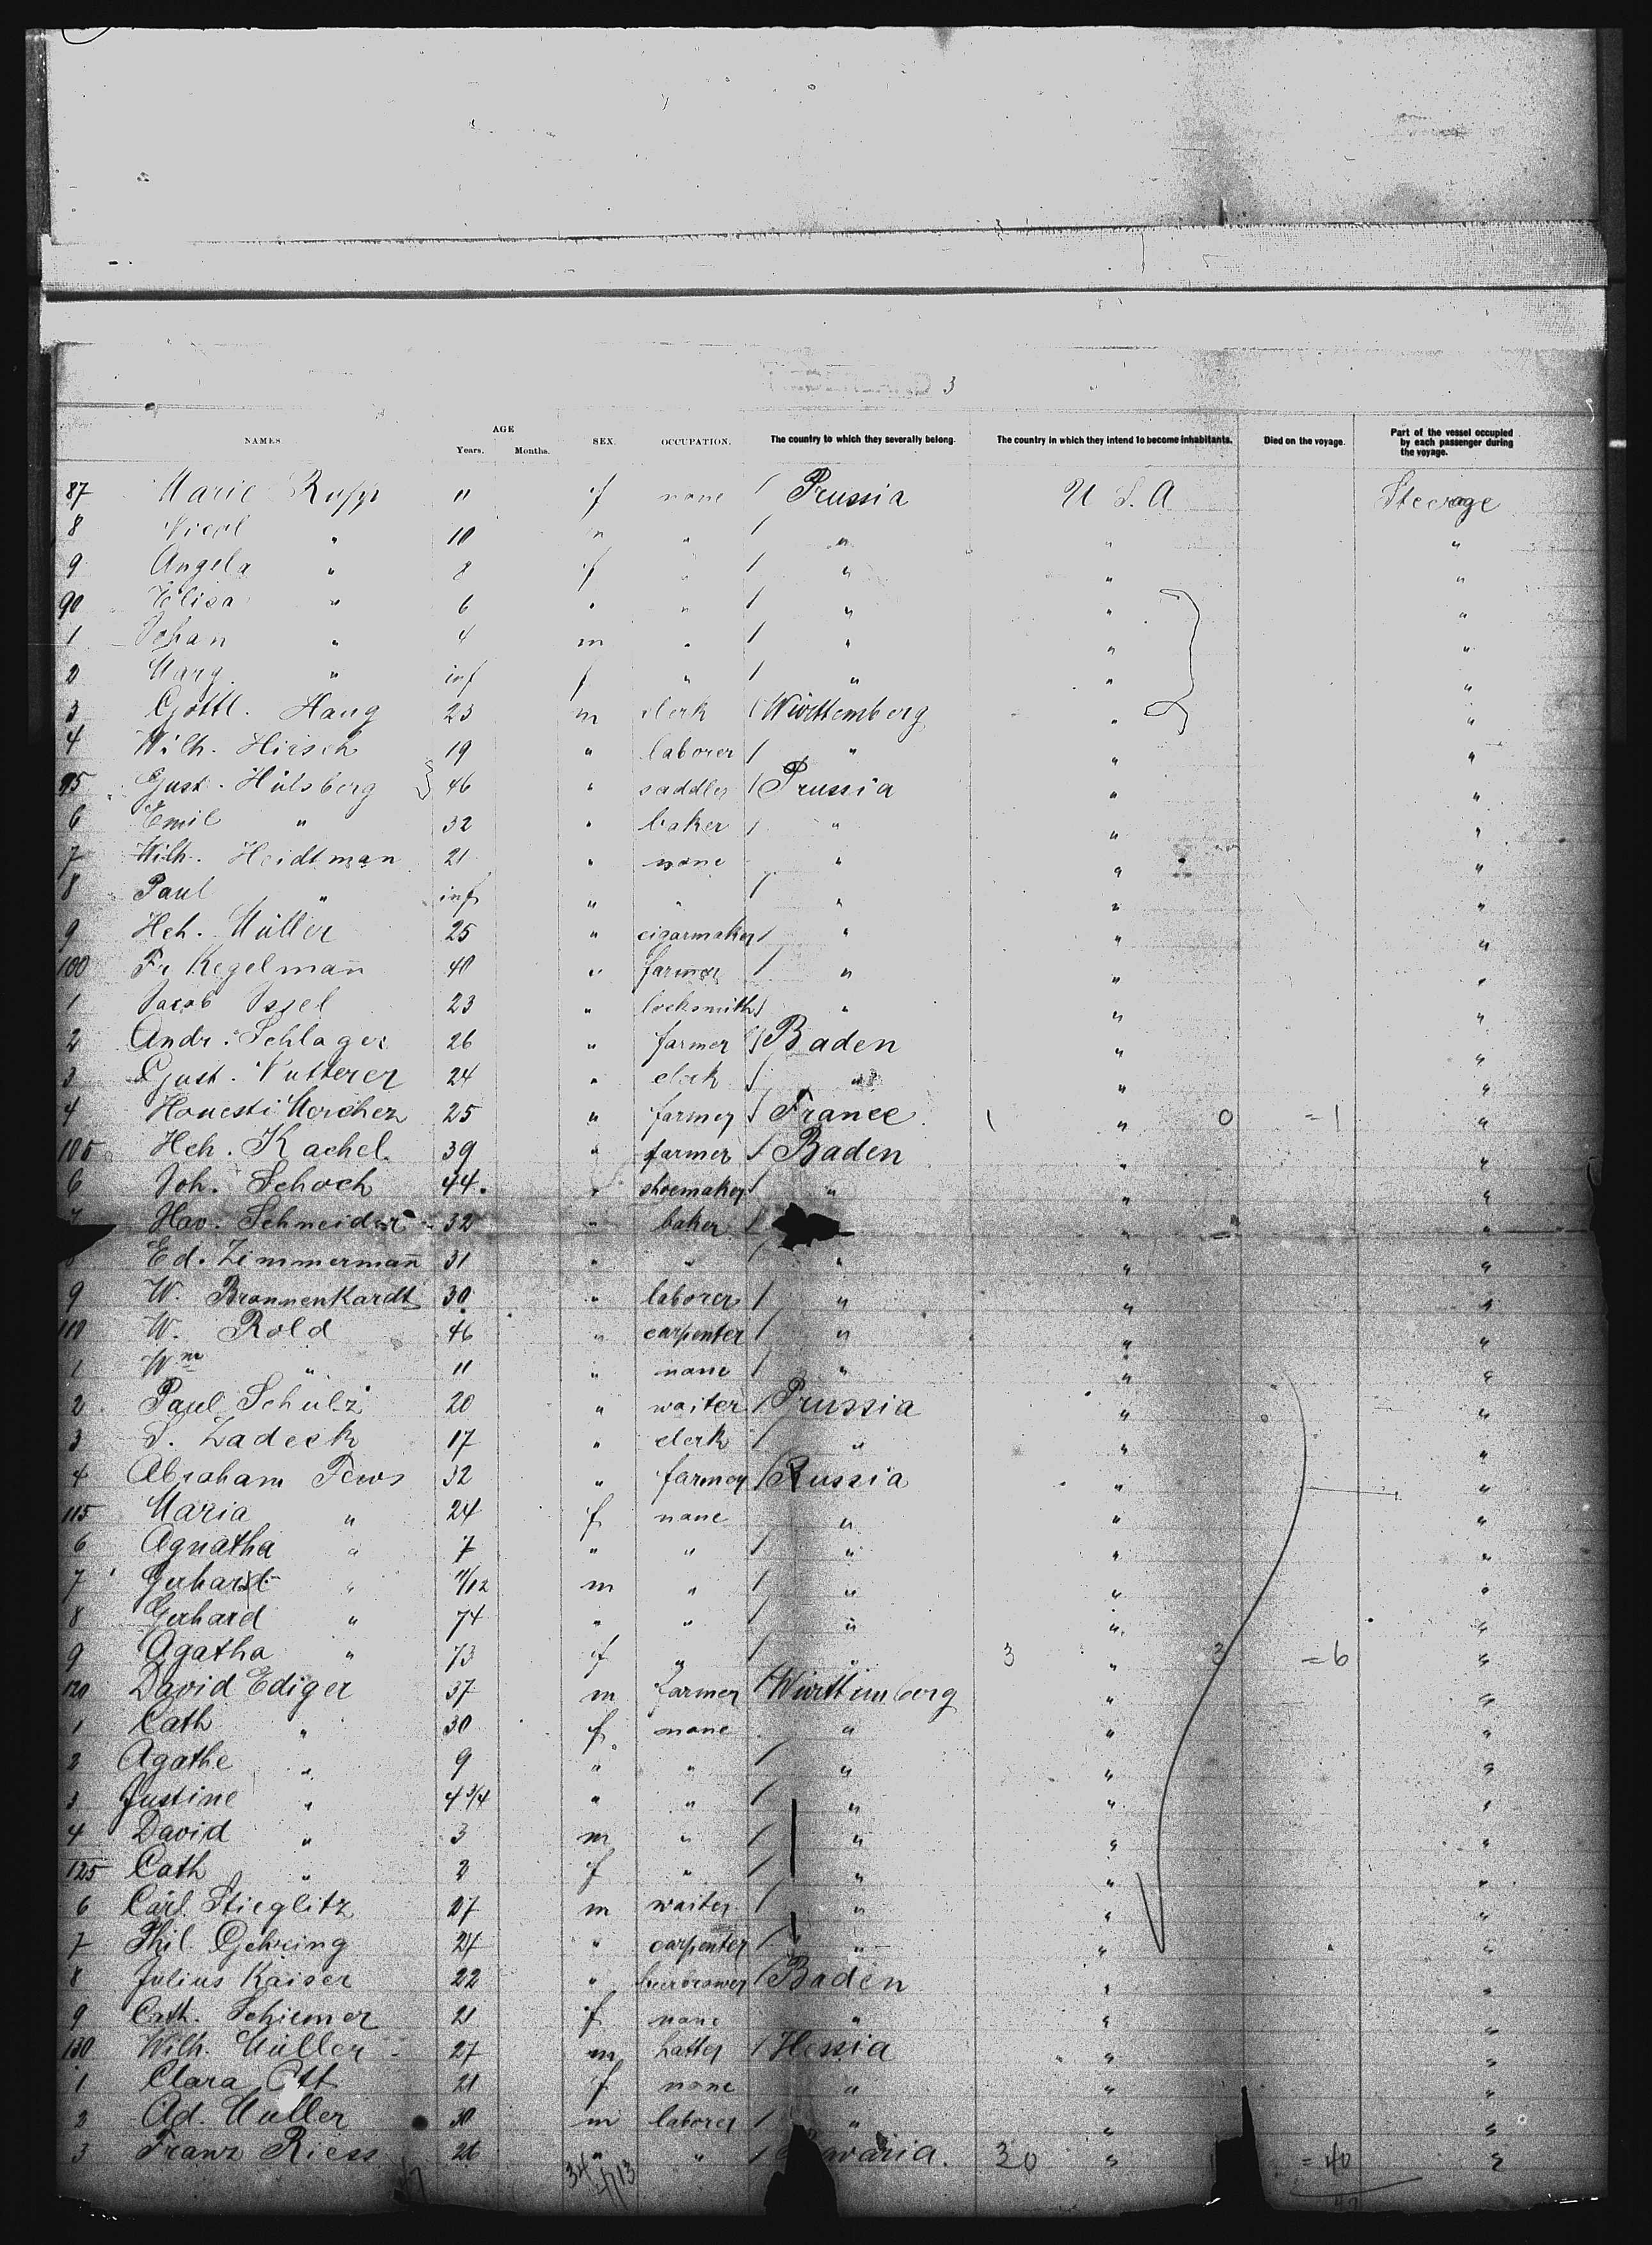 3
NAMES AGE Years. Months. SEX. OCCUPATION. The country to which they severally belong. The country in which they intend to become inhabitants. Died on the voyage. Part of the vessel occupied by each passenger during the voyage.
87 Marie Rupp 11 f none / Prussia U S. A Steerage
8 Nicol " 10 " / " " "
9 Angela " 8 f " / " " "
90 Elisa " 6 " " / " " "
1 Johan " 4 m " / " " "
2 Marg. " inf f " / " " "
3 Gottl. Haug 23 m clerk / Württemberg " "
4 Wilh. Hirsch 19 " laborer / " " "
95 Gust. Hülsberg 46 " saddler / Prussia " "
6 Emil " 32 " baker / " " "
7 Wilh. Heidtman 21 " none " " "
8 Paul " inf " " / " " "
9 Hch. Müller 25 " cigarmaker / " " "
100 Fr Kegelman̄ 40 " farmer / " " "
1 Jacob Issel 23 " locksmith / " " "
2 Andr. Schlager 26 " farmer / Baden " "
3 Gust. Butterer 24 " clerk / " " "
4 25 " farmer / France 1 " 0 = 1 "
105 Hch. Kachel 39 " farmer / Baden " "
6 Joh. Schoch 44. " shoemaker / " " "
7 Schneider 32 " baker / " "
8 Ed. Zimmerman̄ 31 " " / " " "
9 W. Brannenkardt 30 " laborer / " " "
110 W. Rold 46 " carpenter / " " "
1 Wm " 11 " none / " " "
2 Paul Schulz 20 " waiter / Prussia " "
3 S. Zadeck 17 " clerk / " " "
4 Abraham Tews 32 " farmer / Russia " "
115 Maria " 24 f none " " "
6 Agnatha " 7 " " / " " "
7 Gerhard " 11/12 m " / " " "
8 Gerhard " 74 " " / " " "
9 Agatha " 73 f " / " 3 " 3 = 6 "
120 David Ediger 37 m farmer / Württemberg " "
1 Cath " 30 f. none " " "
2 Agathe " 9 " " / " " "
3 Justine " 4 3/4 " " / " " "
4 David " 3 m " / " " "
125 Cath " 2 f " / " " "
6 Carl Stieglitz 27 m waiter / " " "
7 Phil. Gehring 24 " carpenter / " " "
8 Julius Kaiser 22 " beerbrower / Baden " "
9 Cath. Schiemer 21 f none " " "
130 Wilh. Müller 27 m hatter / Hessia " "
1 Clara Ott 21 f none " " "
2 Ad. Müller 30 m laborer / " " "
3 Franz Riess 26 " " / Bavaria. 30 " = 40 "
34 13